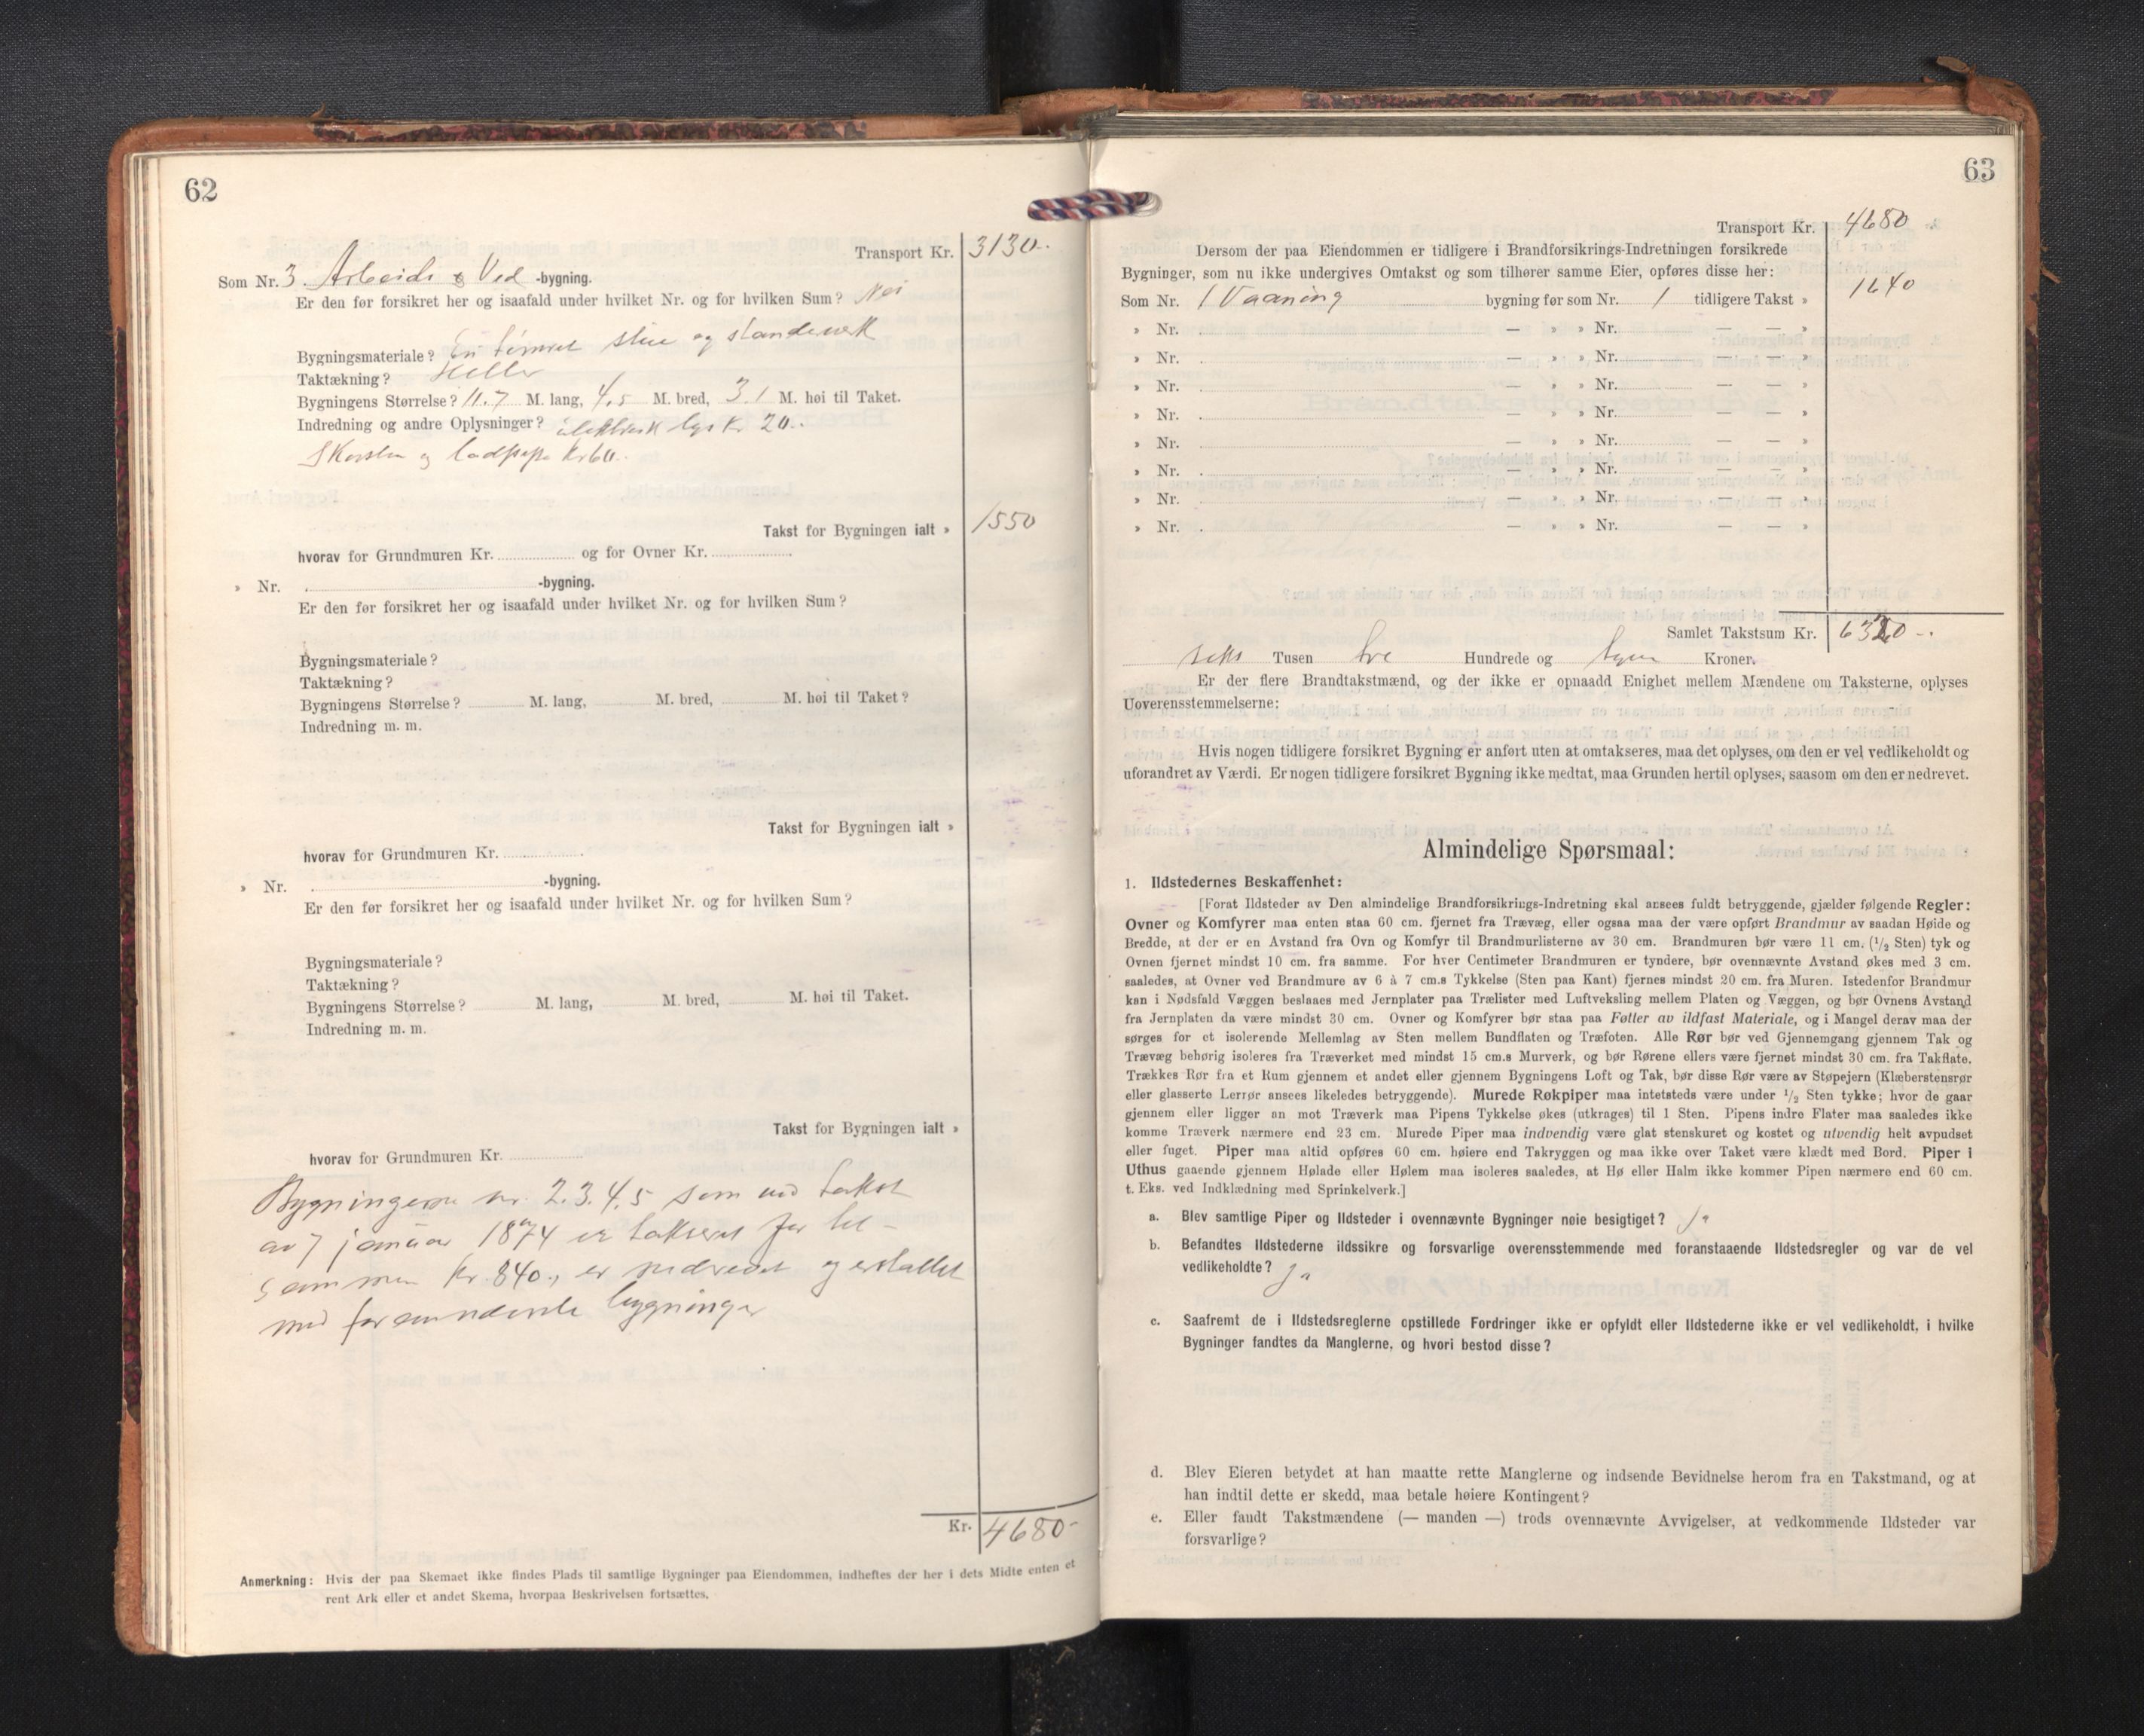 62
Transport Kr. 3130-.
Som Nr. 3. Arbeids & Ved -bygning.
Er den før forsikret her og isaafald under hvilket Nr. og for hvilken Sum? Nei
Bygningsmateriale? En tømret stue og standverk
Taktækning? Heller
Bygningens Størrelse? 11.7 M. lang, 4,5 M. bred, 3.1 M. høi til Taket.
Indredning og andre Oplysninger? elektrisk lys Kr. 20.
Skorsten og Kr 60.
Takst for Bygningen ialt » 1550
hvorav for Grundmuren Kr. og for Ovner Kr.
» Nr. . -bygning.
Er den før forsikret her og isaafald under hvilket Nr. og for hvilken Sum?
Bygningsmateriale?
Taktækning?
Bygningens Størrelse? M. lang, M. bred, M. høi til Taket?
Indredning m. m.
Takst for Bygningen ialt »
hvorav for Grundmuren Kr.
» Nr. . -bygning.
Er den før forsikret her og isaafald under hvilket Nr. og for hvilken Sum?
Bygningsmateriale?
Taktækning?
Bygningens Størrelse? M. lang, M. bred, M. høi til Taket.
Indredning m. m.
Takst for Bygningen ialt »
hvorav for Grundmuren Kr.
Bygningerne nr. 2.3.4.5 som ved takst
av 7 januar 1874 er takseret for til-
sammen Kr. 840., er nedrevet og erstattet
med forannævnte bygninger
Kr. 4680-
Anmerkning: Hvis der paa Skemaet ikke findes Plads til samtlige Bygninger paa Eiendommen, indheftes der her i dets Midte enten et
rent Ark eller et andet Skema, hvorpaa Beskrivelsen fortsættes.
63
Transport Kr. 4680
Dersom der paa Eiendommen er tidligere i Brandforsikrings-Indretningen forsikrede
Bygninger, som nu ikke undergives Omtakst og som tilhører samme Eier, opføres disse her:
Som Nr. 1 Vaaning bygning før som Nr. 1 tidligere Takst » 1640
» Nr. . — » » Nr. — — »
» Nr. . — » » Nr. — — »
» Nr. . — » » Nr. — — »
» Nr. . — » » Nr. — — »
» Nr. . — » » Nr. — — »
» Nr. . — » » Nr. — — »
» Nr. . — » » Nr. — — »
» Nr. . — » » Nr. — — »
Samlet Takstsum Kr. 6320-.
seks Tusen tre Hundrede og tyve Kroner.
Er der flere Brandtakstmænd, og der ikke er opnaadd Enighet mellem Mændene om Taksterne, oplyses
Uoverensstemmelserne:
Hvis nogen tidligere forsikret Bygning er anført uten at omtakseres, maa det oplyses, om den er vel vedlikeholdt og
uforandret av Værdi. Er nogen tidligere forsikret Bygning ikke medtat, maa Grunden hertil oplyses, saasom om den er nedrevet.
Almindelige Spørsmaal:
1. Ildstedernes Beskaffenhet:
[Forat Ildsteder av Den almindelige Brandforsikrings-Indretning skal ansees fuldt betryggende, gjælder følgende Regler:
Ovner og Komfyrer maa enten staa 60 cm. fjernet fra Trævæg, eller ogsaa maa der være opført Brandmur av saadan Høide og
Bredde, at der er en Avstand fra Ovn og Komfyr til Brandmurlisterne av 30 cm. Brandmuren bør være 11 cm. (1/2 Sten) tyk og
Ovnen fjernet mindst 10 cm. fra samme. For hver Centimeter Brandmuren er tyndere, bør ovennævnte Avstand økes med 3 cm.
saaledes, at Ovner ved Brandmure av 6 à 7 cm.s Tykkelse (Sten paa Kant) fjernes mindst 20 cm. fra Muren. Istedenfor Brandmur
kan i Nødsfald Væggen beslaaes med Jernplater paa Trælister med Luftveksling mellem Platen og Væggen, og bør Ovnens Avstand
fra Jernplaten da være mindst 30 cm. Ovner og Komfyrer bør staa paa Føtter av ildfast Materiale, og i Mangel derav maa der
sørges for et isolerende Mellemlag av Sten mellem Bundflaten og Træfoten. Alle Rør bør ved Gjennemgang gjennem Tak og
Trævæg behørig isoleres fra Træverket med mindst 15 cm.s Murverk, og bør Rørene ellers være fjernet mindst 30 cm. fra Takflate.
Trækkes Rør fra et Rum gjennem et andet eller gjennem Bygningens Loft og Tak, bør disse Rør være av Støpejern (Klæberstensrør
eller glasserte Lerrør ansees likeledes betryggende). Murede Røkpiper maa intetsteds være under 1/2 Sten tykke; hvor de gaar
gjennem eller ligger an mot Træverk maa Pipens Tykkelse økes (utkrages) til 1 Sten. Pipens indre Flater maa saaledes ikke
komme Træverk nærmere end 23 cm. Murede Piper maa indvendig være glat stenskuret og kostet og utvendig helt avpudset
eller fuget. Piper maa altid opføres 60 cm. høiere end Takryggen og maa ikke over Taket være klædt med Bord. Piper i
Uthus gaaende gjennem Hølade eller Hølem maa isoleres saaledes, at Hø eller Halm ikke kommer Pipen nærmere end 60 cm.
t. Eks. ved Indklædning med Sprinkelverk.]
a. Blev samtlige Piper og Ildsteder i ovennævnte Bygninger nøie besigtiget? Ja
b. Befandtes Ildstederne ildssikre og forsvarlige overensstemmende med foranstaaende Ildstedsregler og var de vel
vedlikeholdte? Ja
c. Saafremt de i Ildstedsreglerne opstillede Fordringer ikke er opfyldt eller Ildstederne ikke er vel vedlikeholdt, i hvilke
Bygninger fandtes da Manglerne, og hvori bestod disse?
d. Blev Eieren betydet at han maatte rette Manglerne og indsende Bevidnelse herom fra en Takstmand, og at
han indtil dette er skedd, maa betale høiere Kontingent?
e. Eller fandt Takstmændene (— manden —) trods ovennævnte Avvigelser, at vedkommende Ildsteder var
forsvarlige?